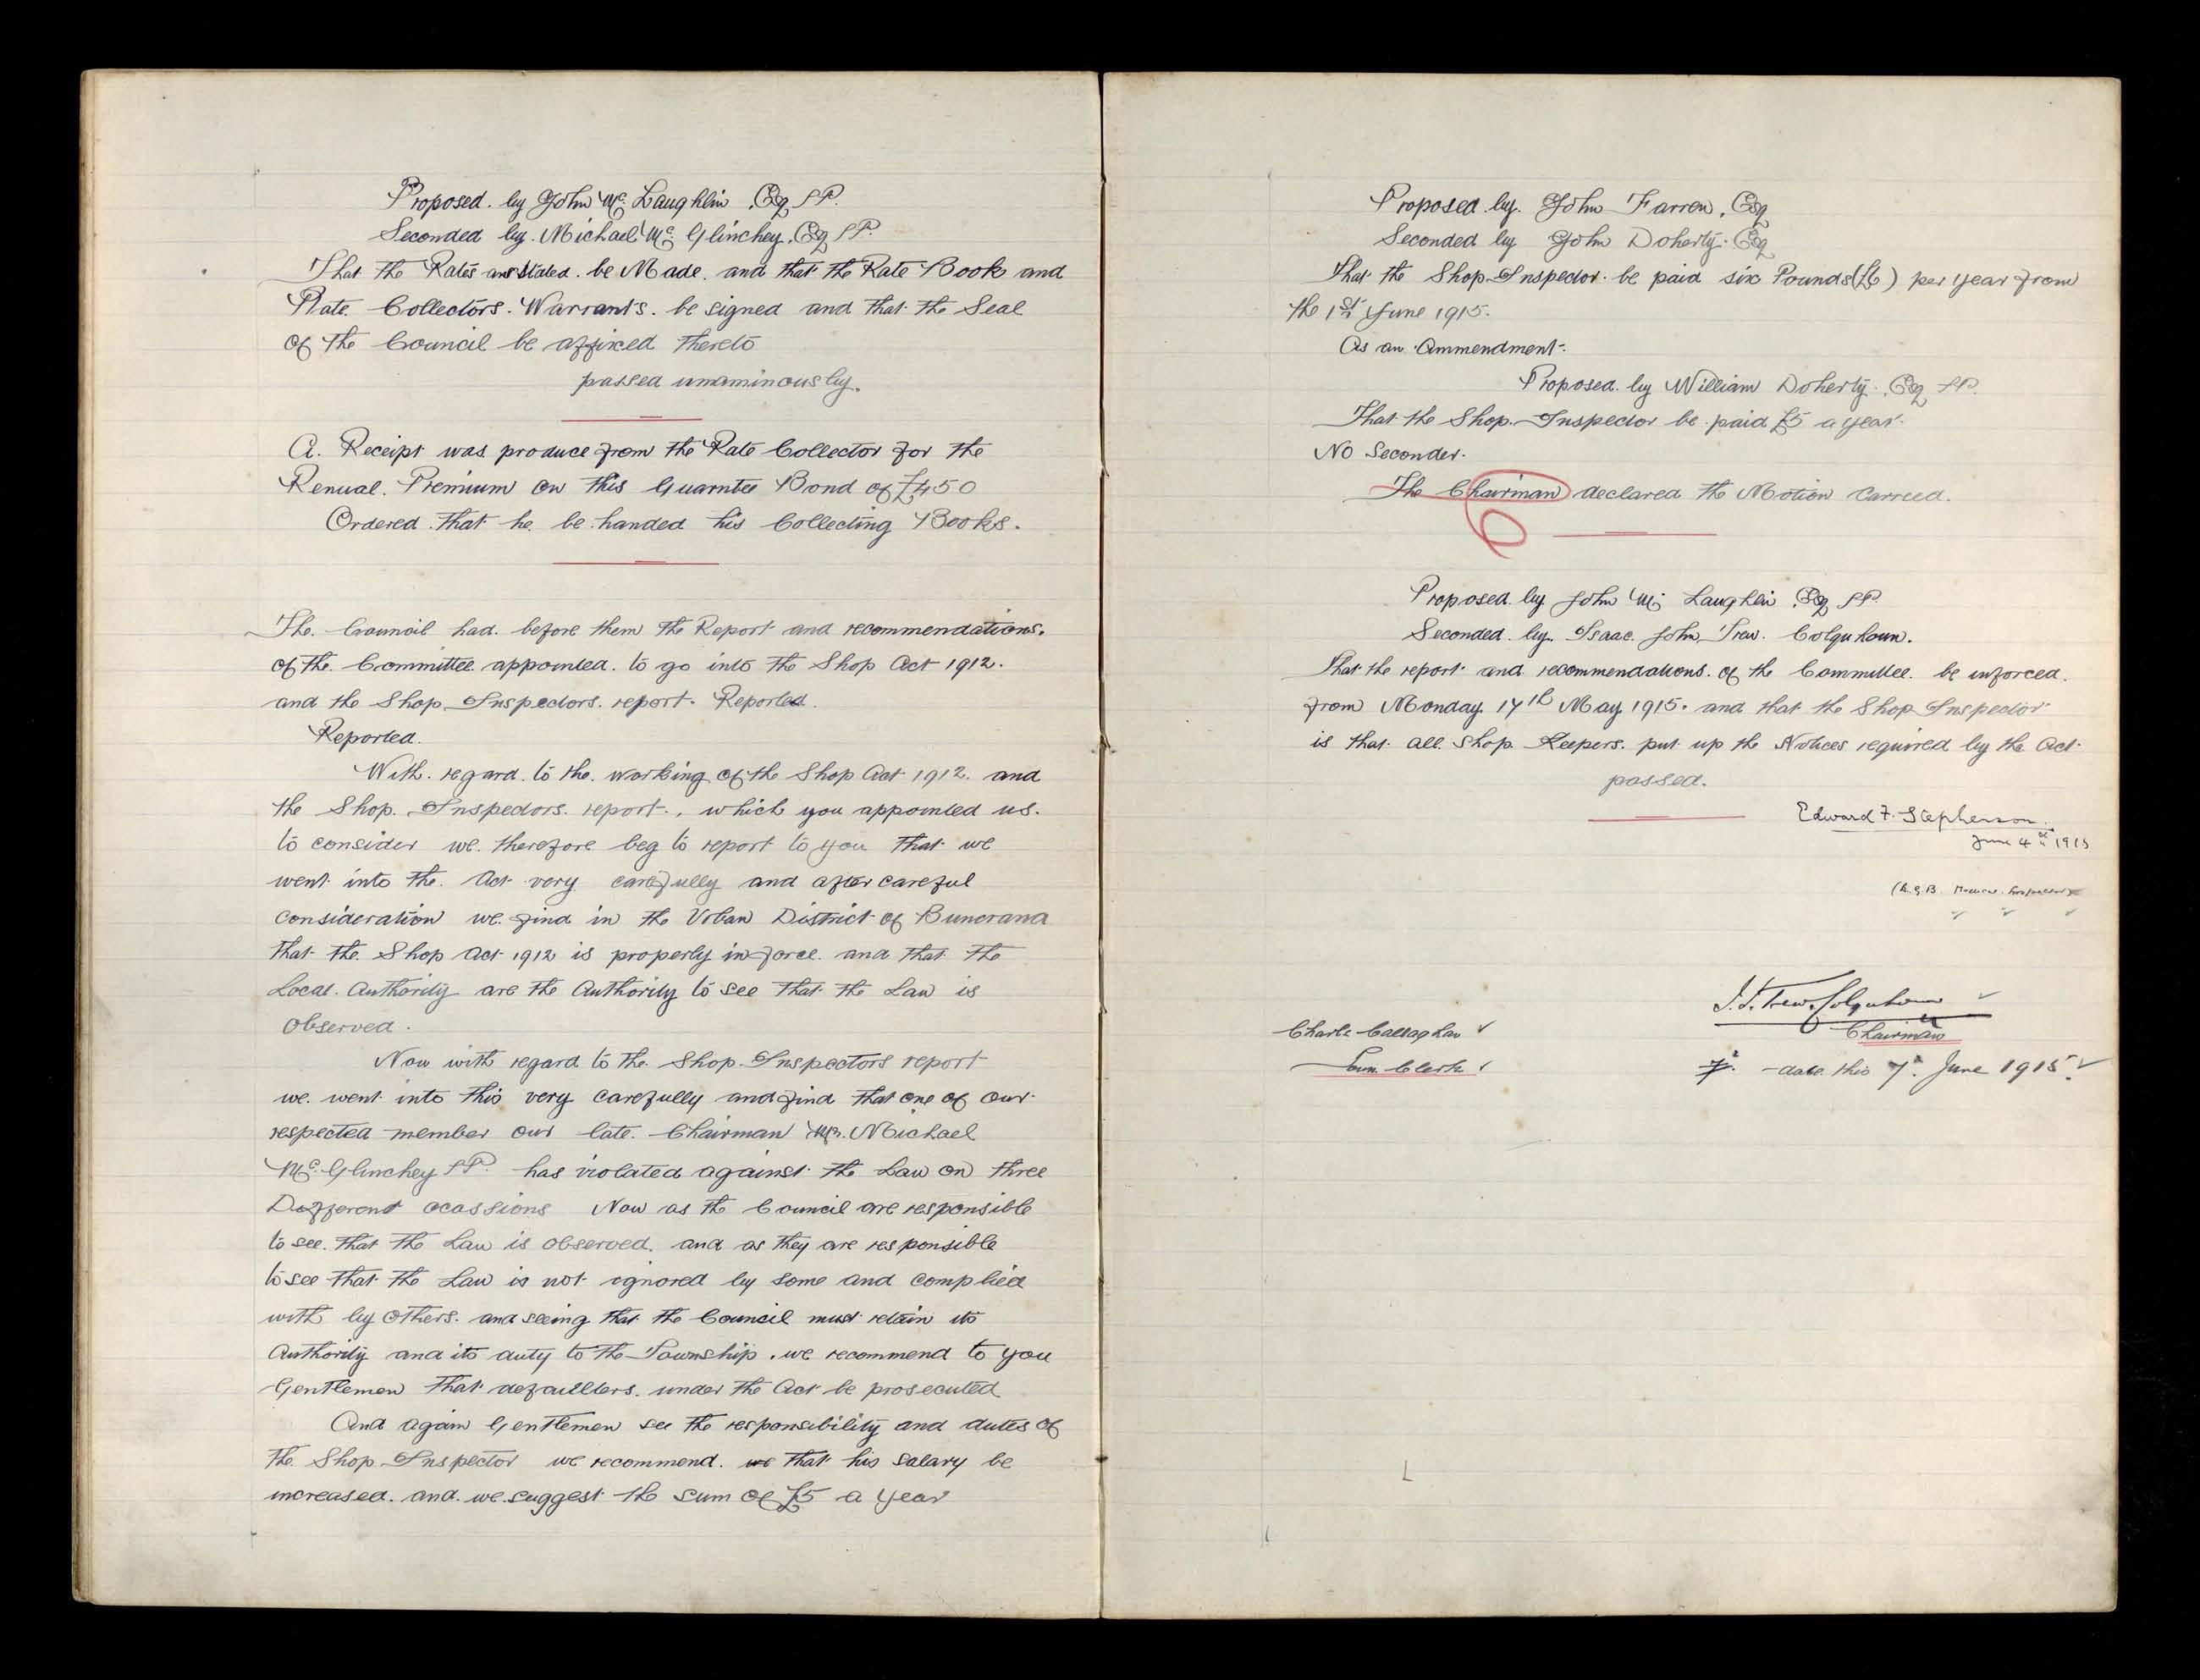 Proposed. by John Mc. Laughlin. Esq J.P.
Seconded by. Michael Mc. Glinchey. Esq J.P.
That the Rates are stated. be Made. and that the Rate Book and
Rate. Collectors. Warrants. be signed and that the Seal
of the Council be affixed thereto
passed unaminously.
A. Receipt was produce from the Rate Collector for the
Renual. Premium on this Guarntee Bond of £450
Ordered. that he be handed his Collecting Books.
The. Council had. before them the Report and recommendations.
of the. Committee appointed. to go into the Shop Act 1912.
and the Shop. Inspectors. report. Reported.
Reported.
With. regard. to the. working of the Shop Act 1912. and
the Shop. Inspectors. report., which you appointed us.
to consider we. therefore beg to report to you that we
went into the. Act very carefully and after careful
consideration we. find in the Urban District of Buncrana
that the. Shop Act 1912 is properly in force. and that the
Local. Authority are the Authority to see that the Law is
observed.
Now with regard to the. Shop. Inspectors report
we. went into this very carefully and find that one of our
respected member our late. Chairman Mr. Michael
Mc. Glinchey J.P. has violated against the Law on three
Defferent ocassions Now as the Council are responsible
to see. that the Law is observed. and as they are responsible
to see that the Law is not ignored by some and complied
with by others. and seeing that the Council must retain its
Authority and its duty to the Township. we recommend to you
Gentlemen that defaullters. under the Act be prosecuted
And again Gentlemen see the responsibility and dutes of
the. Shop. Inspector we recommend. we that his salary be
increased. and. we. suggest the sum of £5 a year
Proposed. by. John Farren. Esq
Seconded by John Doherty. Esq
That the Shop. Inspector. be paid six Pounds (£6) per year from
the 1st June 1915.
As an Ammendment.
Proposed. by William Doherty. Esq J.P.
That the Shop. Inspector be paid £5 a year.
No Seconder.
The Chairman declared the Motion carreed.
Proposed. by John Mc. Laughlin. Esq J.P.
Seconded. by. Isaac. John. Trew. Colquhoun.
That the report and recommendations. of the Committee. be inforced.
from Monday. 17th May 1915. and that the Shop Inspector
is that all Shop Keepers. put up the Notices required by the Act.
passed.
Edward F. Stephenson.
June 4th 1915
(L.G.B. Medical Inspector)
I. J. Trew. Colquhoun
Chairman
Charle Callaghan
Clerk
date this 7th June 1915.